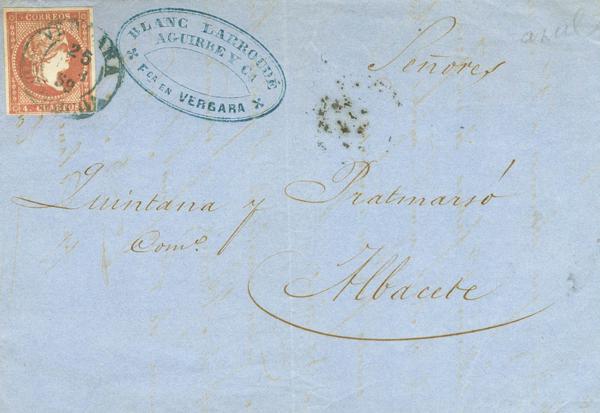 CORREOS
4 CUARTOS
25
BLANC LARROUDÉ
AGUIRRE Y CA.
FCA EN VERGARA
azul
Señores
Quintana y Pratmarsó
Comª
Albacete